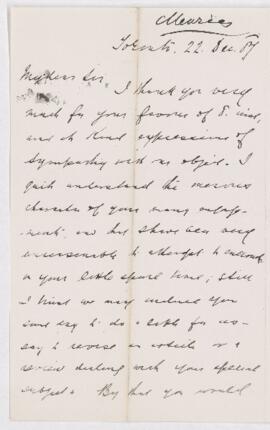 Toronto, 22. Dec. 87
My dear Sir,
I thank you very
much for your favour of 8. inst,
and the kind expressions of
sympathy with our object. I
quite understand the
character of your many
and that it would be very
unreasonable to attempt to encroach
on your little spare time; still
I trust we may induce you
some day to do a little for us —
say to revise an article or a
review dealing with your special
subject. By that you would